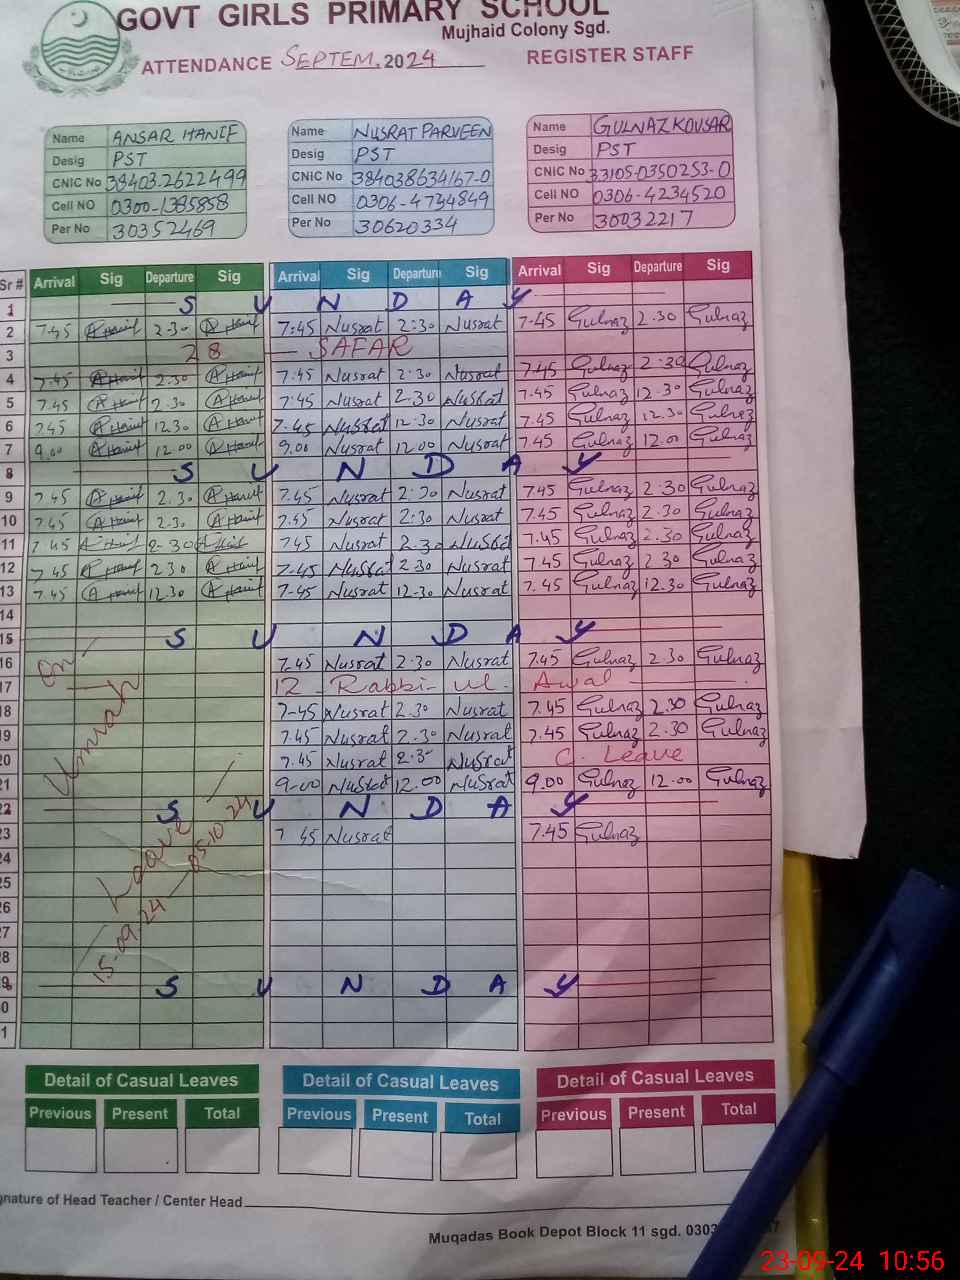 GOVT GIRLS PRIMARY SCHOOL
Mujhaid Colony Sgd.
ATTENDANCE SEPTEM. 2024 REGISTER STAFF
Name ANSAR HANIF Name NUSRAT PARVEEN Name GULNAZ KOUSAR
Desig PST Desig PST Desig PST
CNIC No 38403.2622499 CNIC No 384038634167-0 CNIC No 33105-0350253-0
Cell NO 0300-1385858 Cell NO 0306-4734849 Cell NO 0306-4234520
Per No 30352469 Per No 30620334 Per No 30032217
Sr # Arrival Sig Departure Sig Arrival Sig Departure Sig Arrival Sig Departure Sig
1 S U N D A Y
2 7.45 A Hanif 2.30 A Hanif 7:45 Nusrat 2:30 Nusrat 7.45 Gulnaz 2.30 Gulnaz
3 28 SAFAR
4 7.45 A Hanif 2.30 A Hanif 7:45 Nusrat 2.30 Nusrat 7.45 Gulnaz 2.30 Gulnaz
5 7.45 A Hanif 2.30 A Hanif 7.45 Nusrat 2.30 Nusrat 7.45 Gulnaz 12.30 Gulnaz
6 7.45 A Hanif 12.30 A Hanif 7.45 Nusrat 12.30 Nusrat 7.45 Gulnaz 12.30 Gulnaz
7 9.00 A Hanif 12.00 A Hanif 9.00 Nusrat 12.00 Nusrat 7.45 Gulnaz 12.00 Gulnaz
8 S U N D A Y
9 7.45 A Hanif 2.30 A Hanif 7.45 Nusrat 2:30 Nusrat 7.45 Gulnaz 2.30 Gulnaz
10 7.45 A Hanif 2.30 A Hanif 7.45 Nusrat 2:30 Nusrat 7.45 Gulnaz 2.30 Gulnaz
11 7.45 A Hanif 2-30 A Hanif 7.45 Nusrat 2.30 Nusrat 7.45 Gulnaz 2.30 Gulnaz
12 7.45 A Hanif 2.30 A Hanif 7.45 Nusrat 2.30 Nusrat 7.45 Gulnaz 2.30 Gulnaz
13 7.45 A Hanif 12.30 A Hanif 7-45 Nusrat 12-30 Nusrat 7.45 Gulnaz 12.30 Gulnaz
14
15 S U N D A Y
16 7.45 Nusrat 2.30 Nusrat 7.45 Gulnaz 2.30 Gulnaz
17 12 - Rabbi-ul. Awal
18 7-45 Nusrat 2.30 Nusrat 7.45 Gulnaz 2.30 Gulnaz
19 7.45 Nusrat 2.30 Nusrat 7.45 Gulnaz 2.30 Gulnaz
20 7.45 Nusrat 2.3 Nusrat C. Leave
21 9-00 Nusrat 12.00 Nusrat 9.00 Gulnaz 12.00 Gulnaz
22 S U N D A Y
23 7.45 Nusrat 7.45 Gulnaz
24
25
26
27
28
9 S U N D A Y
0
1
On
Umrah
Leave
15-09-24 05-10-24
Detail of Casual Leaves Detail of Casual Leaves Detail of Casual Leaves
Previous Present Total Previous Present Total Previous Present Total
gnature of Head Teacher / Center Head
Muqadas Book Depot Block 11 sgd. 0303
23-09-24 10:56